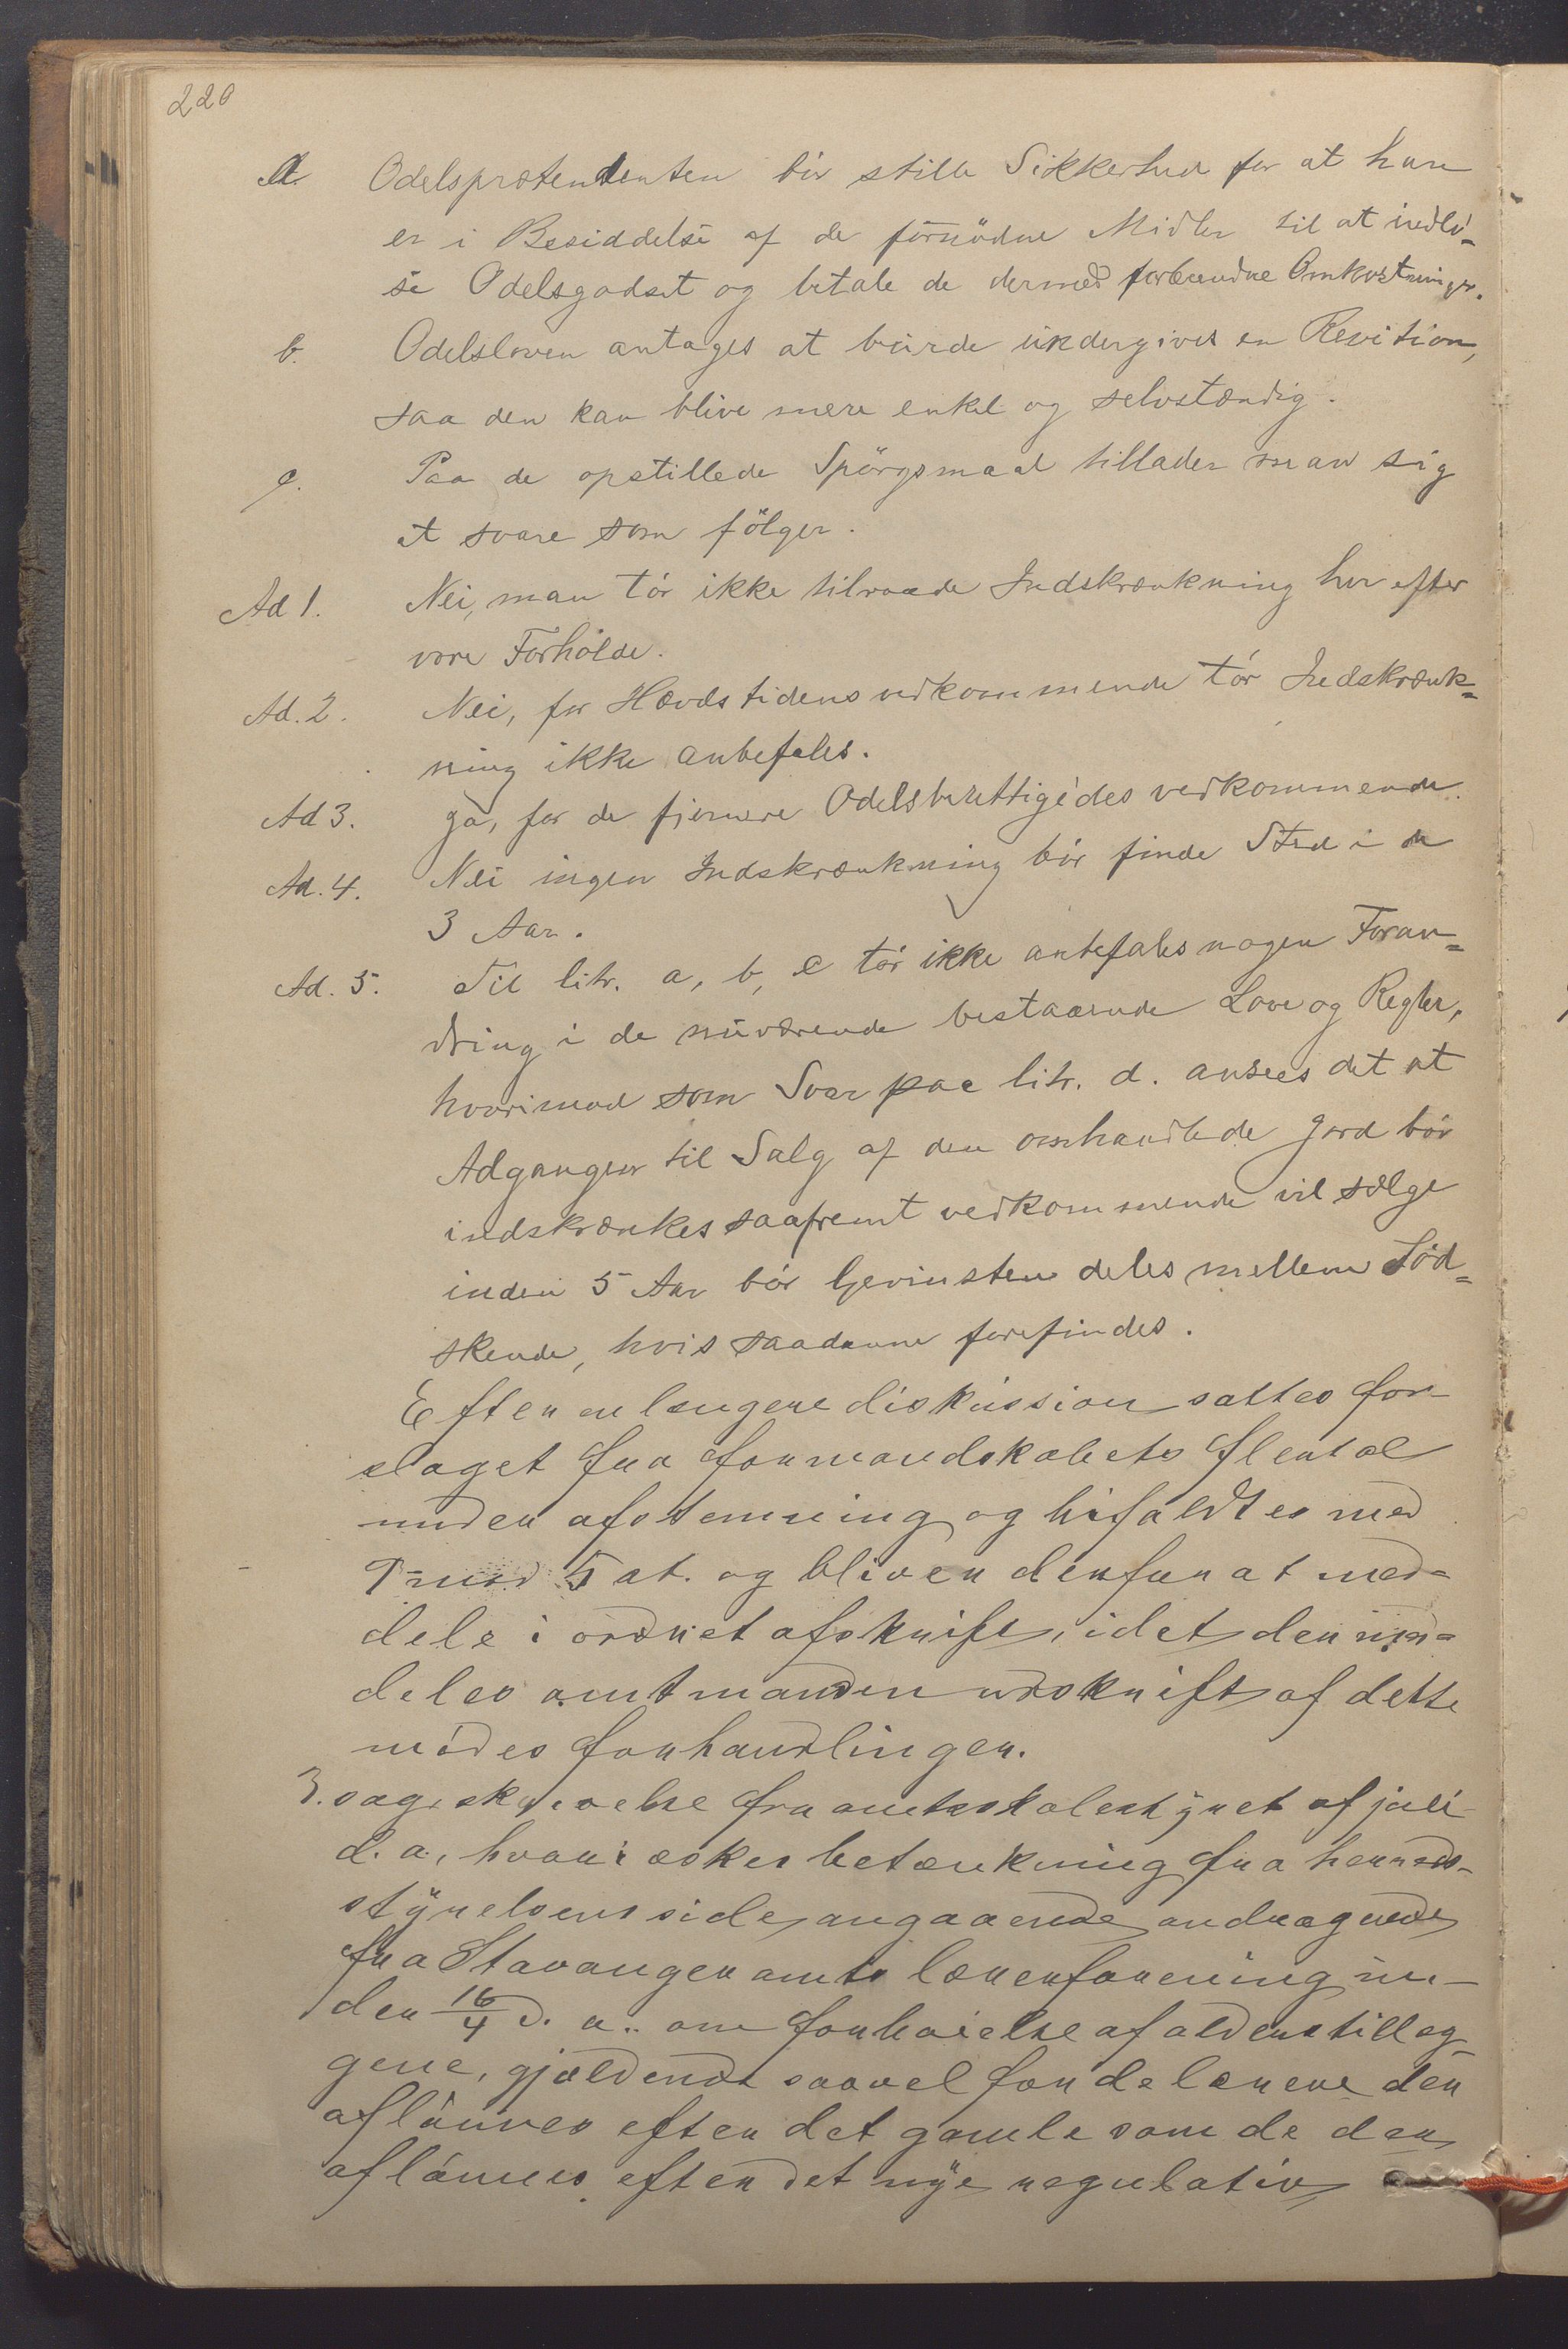 220
a. Odelsprætendenten bör stille Sikkerhed for at have
er i Besiddelse af de fornödne Midler til at indlö-
se Odelsgodset og betale de dermed forbundne Omkostninger.
b. Odelsloven antages at burde undergives en Revition,
saa den kan blive mere enkel og selvstændig.
c. Paa de opstillede Spörgsmaal tillader man sig
at svare som fölger.
Ad 1. Nei, man tör ikke tilraade Indskrænkning her efter
vore Forholde.
Ad. 2. Nei, for Hævdstidens vedkommende tör Indskrænk-
ning ikke anbefales.
Ad 3. Ja, for de fjernere Odelsberettigedes vedkommende.
Ad. 4. Nei ingen Indskrænkning bör finde Sted i de
3 Aar.
Ad. 5. Til litr. a, b, c tör ikke anbefales nogen Foran-
dring i de nuværende bestaaende Love og Regler,
hvorimod som Svar paa litr. d. ansees det at
Adgangen til Salg af den omhandlede Jord bör
indskrænkes saafremt vedkommende vil sælge
inden 5 Aar bör Gevinsten deles mellem Söd-
skende, hvis saadanne forefindes.
Efter en længere diskussion sattes for-
slaget fra formandskabets flertal
under afstemning og bifaldtes med
9 mod 5 st. og bliver derfor at med-
dele i ordret afskrift, idet der med-
deles amtmanden udskrift af dette
mödes forhandlinger.
3. sag. skrivelse fra amtsskolestyret af juli
d. a., hvori æskes betænkning fra herreds-
styrelsens side angaaende andragende
fra Stavanger amts lærerforening un-
der 16/4 d. a. om forhöielse af alderstillæg-
gene, gjældende saavel for de lærere der
aflönnes efter det gamle som de der
aflönnes efter det nye regulativ